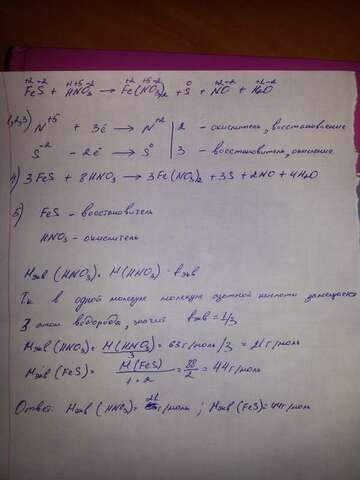 +2 -2 +1 +5 -2 +2 +5 -2 0 +2 -2 +1 -2
FeS + HNO3 → Fe(NO3)2 + S + NO + H2O
1,2,3) N+5 + 3ē → N+2 | 2 - окислитель, восстановление
S-2 - 2ē → S0 | 3 - восстановитель, окисление
4) 3FeS + 8HNO3 → 3Fe(NO3)2 + 3S + 2NO + 4H2O
5) FeS - восстановитель
HNO3 - окислитель
Mэкв (HNO3) = M(HNO3) · fэкв
Тк в одной молекуле молекуле азотной кислоты замещается
3 атом водорода, значит fэкв = 1/3
Mэкв (HNO3) = M(HNO3)/3 = 63 г/моль /3 = 21 г/моль
Mэкв (FeS) = M(FeS)/1·2 = 88/2 = 44 г/моль
Ответ: Mэкв (HNO3) = 21 г/моль ; Mэкв (FeS) = 44 г/моль